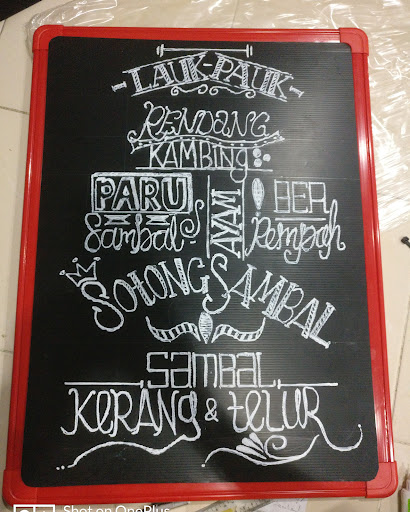 LAUK-PAUK
RENDANG
KAMBING
PARU
Sambal
AYAM
BER
Rempah
SOTONG SAMBAL
SAMBAL
KERANG & TELUR
Shot on OnePlus